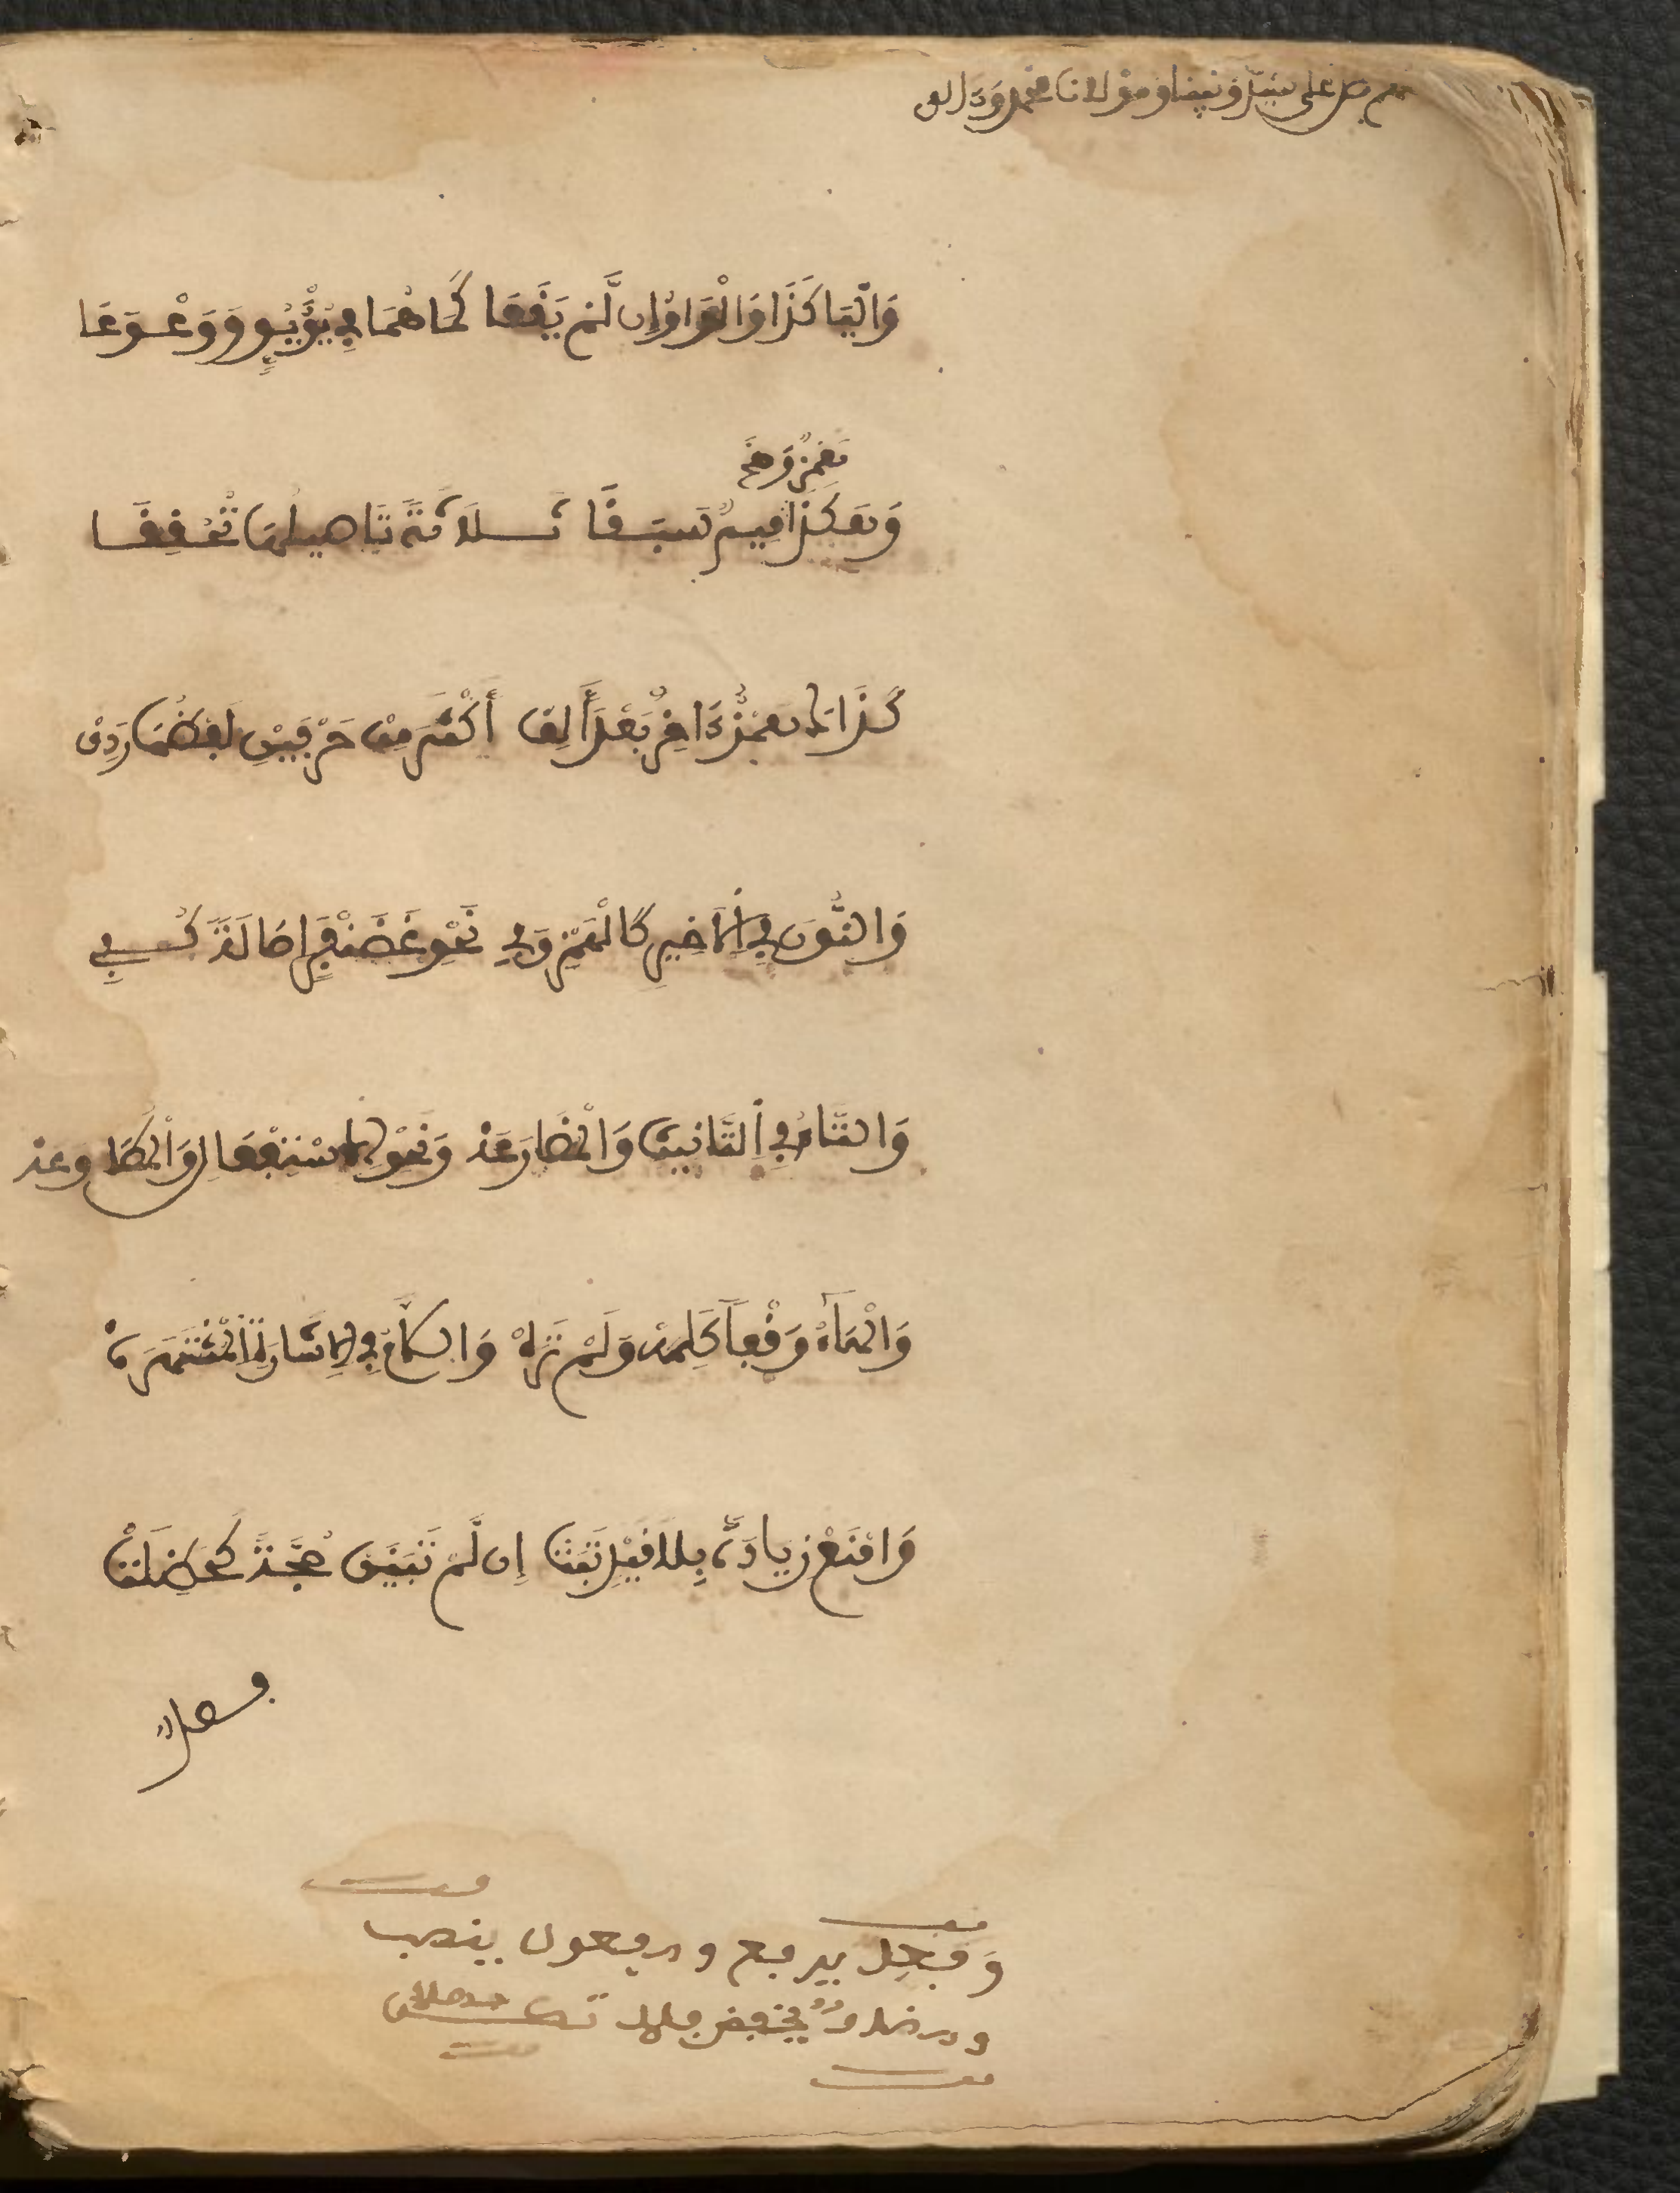 صل على سيدنا ونبينا ومولانا محمد وءاله
وَالْيَا كَذَا وَالْوَاوُ إِن لَّمْ يَقَعَا كَمَا هُمَا فِي يُؤْيُؤٍ وَوَعْوَعَا
همز و
وَهَكَذَا مِيمٌ سَبَقَا ثَلَاثَةً تَاصِيلُهَا تُحُقِّقَا
كَذَاكَ هَمْزٌ ءَاخِرٌ بَعْدَ أَلِفْ أَكْثَرَ مِنْ حَرْفَيْنِ لَفْظُهَا رَدِفْ
وَالنُّونُ فِي الَاخِيرِ كَالْهَمْزِ وَفِي نَحْوِ غَضَنْفَرٍ اصَالَةً كُفِي
وَالتَّاءُ فِي التَّانِيثِ وَالْمُضَارَعَهْ وَنَحْوِ الِاسْتِفْعَالِ وَالْمُطَاوعَهْ
وَالْهَاءُ وَقْفاً كَلِمَهْ وَلَمْ تَرَهْ وَاللَّامُ فِي الِاشَارَةِ الْمُشْتَهِرَهْ
وَامْنَعْ زِيَادَةً بِلَا قَيْدٍ ثَبَتْ إِن لَّمْ تَبَيَّنْ حُجَّةٌ كَحَظِلَتْ
فصل
وَفِعْل يرفع ومرفعون ينصب